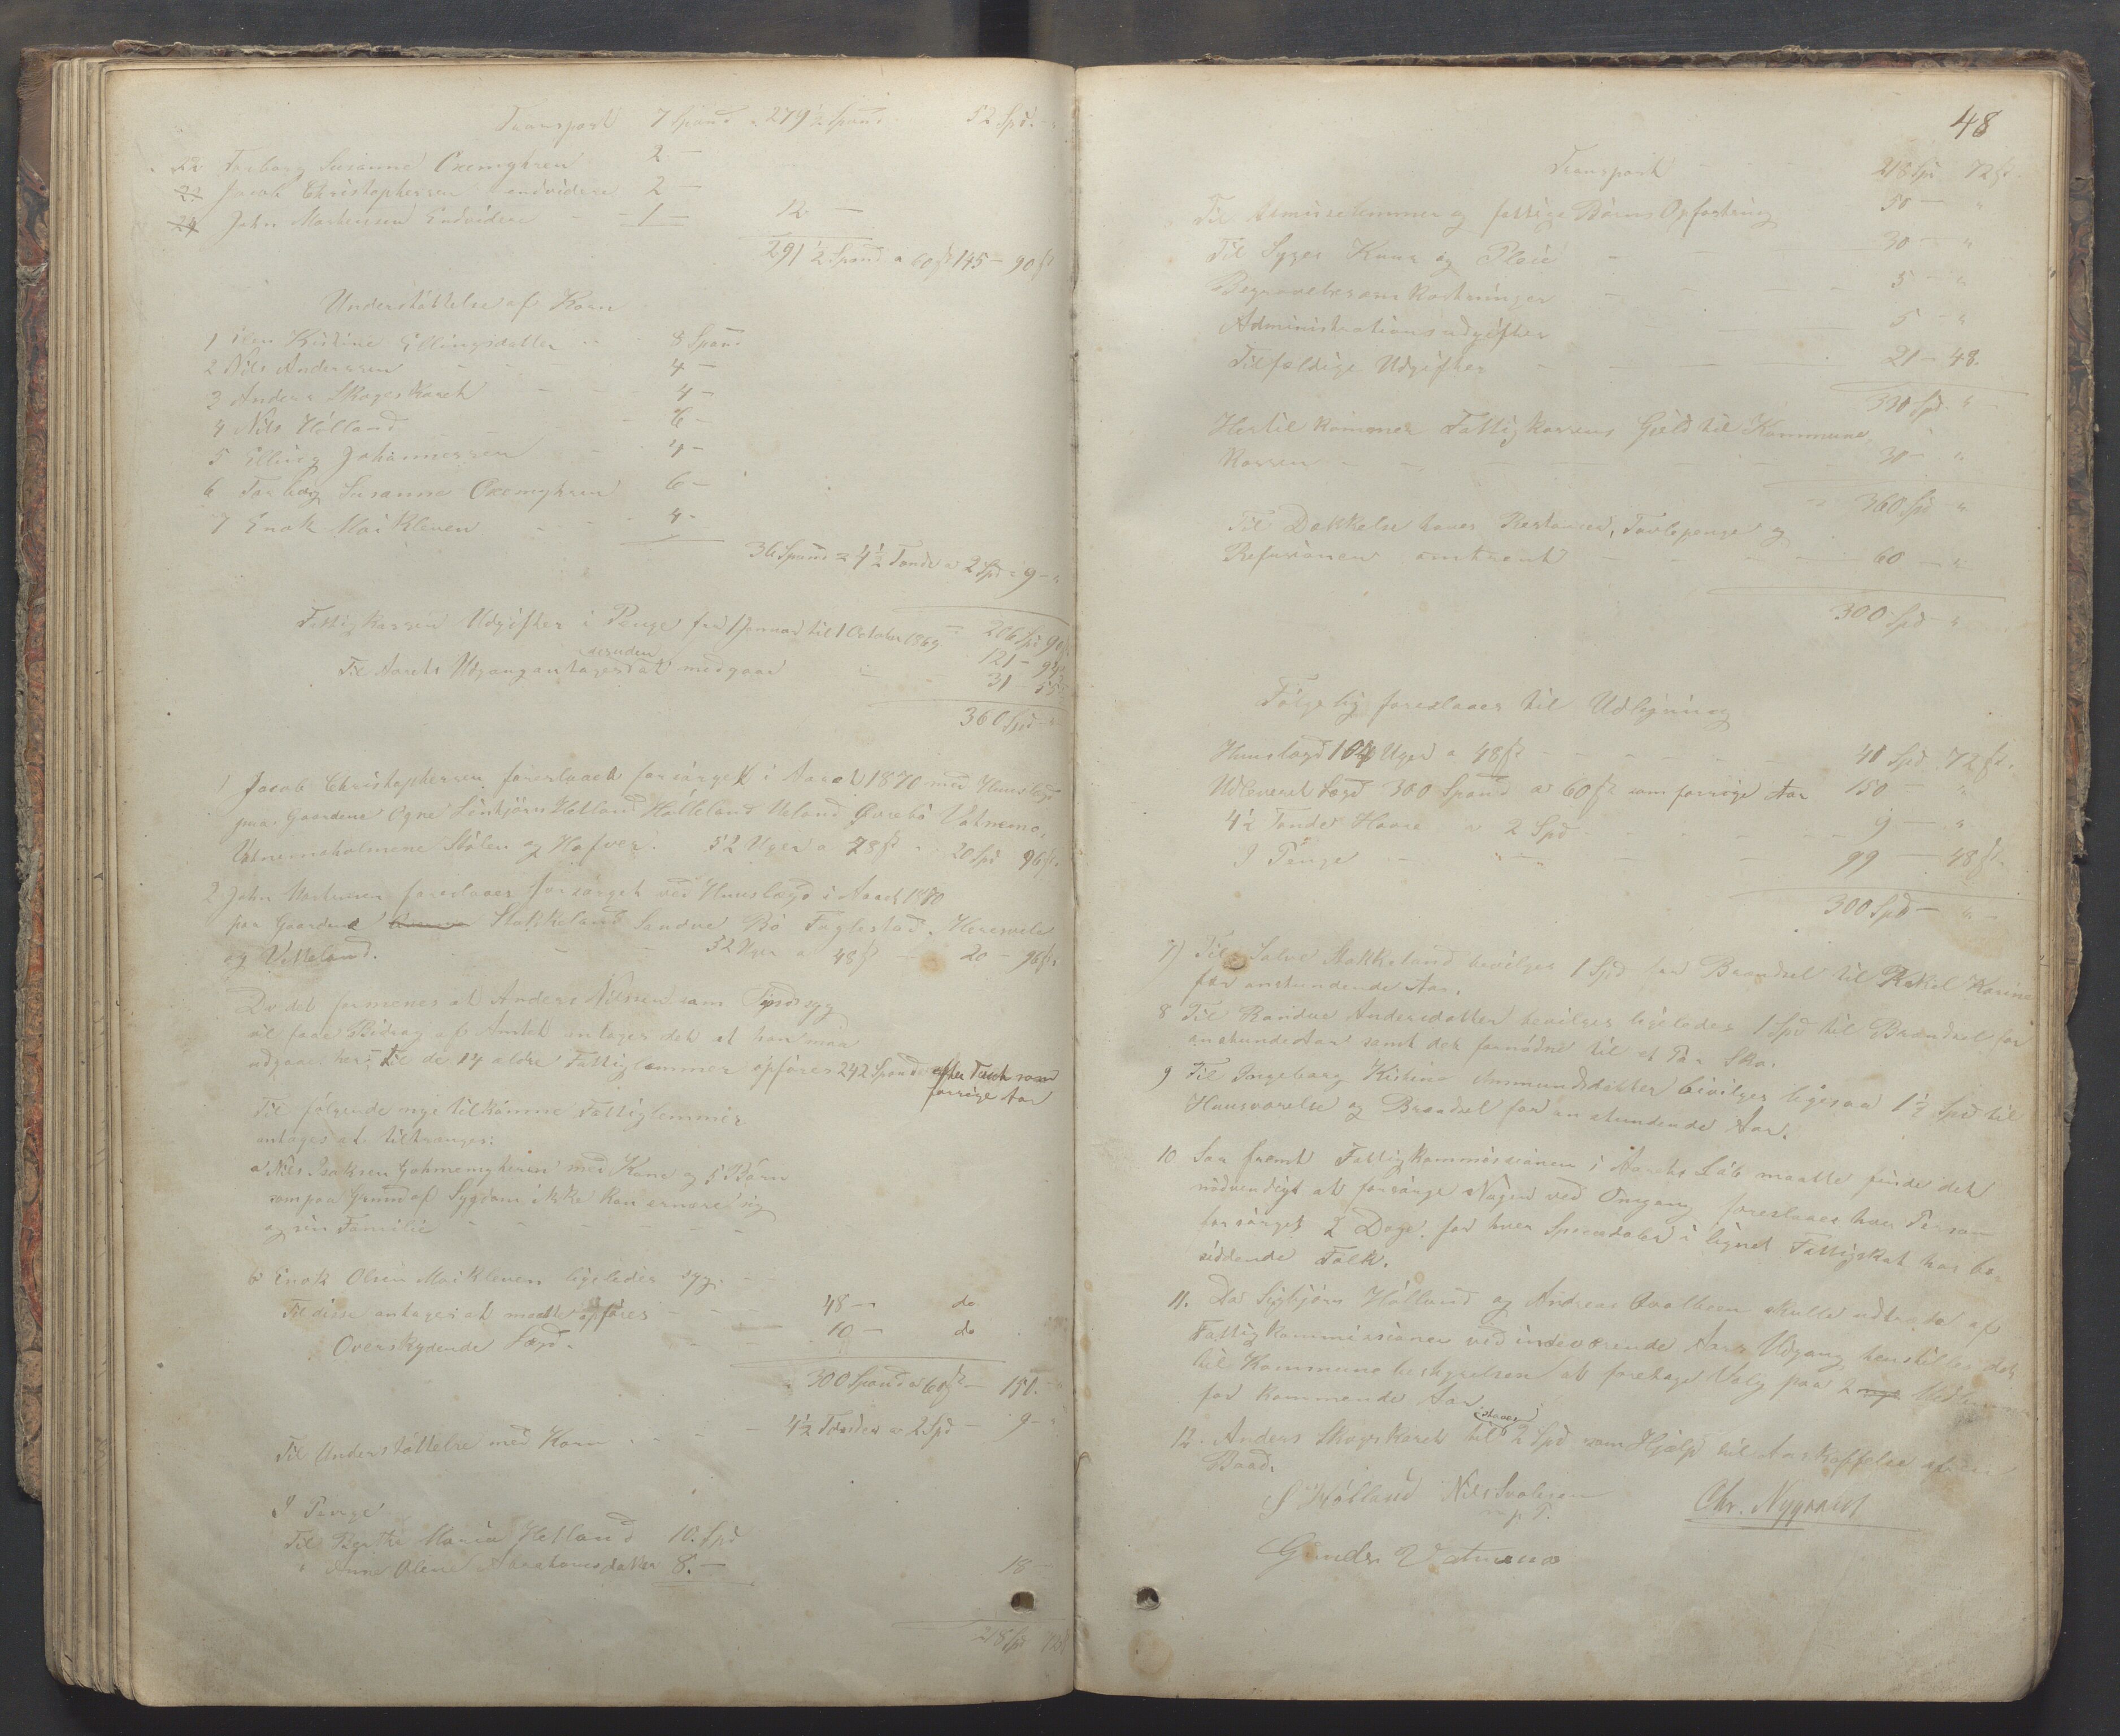 Transport 7 Spand a 279 ½ Spand 52 Spd. "
22 Torborg Susanne Oxemyhren 2 —
23 Jacob Christophersen endvidere 2 —
24 John Mortensen Endvidere — 1 — 12 —
291 ½ Spand a 60 ß 145 — 90 ß
Understöttelse af Korn
1 Elen Kistine Ellingsdatter 8 Spand
2 Nils Anderssen 4 —
3 Anders Skogskaret 4 —
4 Nils Hölland 6 —
5 Elling Johannessen 4 —
6 Torborg Susanne Oxemyhren 6 —
7 Enok Maikleven 4 —
36 Spand = 4 ½ Tønde a 2 Spd = 9 — "
Fattigkassens Udgifter i Penge fra 1 Januar til 1 October 1869 = 206 Spd 90
121 — 94
desuden
Til Aarets Udgang antages at medgaae 31 — 55
360 Spd "
1 Jacob Christophersen foreslaaes forsörget i Aaret 1870 med Huuslægd
paa Gaardene Ogne Lindtjörn Hetland Hölleland Ueland Øvrebö Vatnemo,
Vatnemoholmene Stölen og Hafver. 52 Uger a 48 ß 20 Spd 96 ß.
2 John Mortensen foreslaaes forsörget ved Huuslægd i Aaret 1870
paa Gaardene Stakkeland Sandve Bö Fuglestad, Heresvela
og Vetteland. — — 52 Uger a 48 ß — 20 — 96 ß.
Da det formenes at Anders Nilssen som Sindssyg
vil faae Bidrag af Amtet antages det at han maa
udgaae her; Til de 14 ældre Fattiglemmer opføres 242 Spand efter Taxt som
forrige Aar
Til følgende nye tilkomne Fattiglemmer
antages at tiltrænges:
a Nils Isaksen Gohmemyhren med Kone og 5 Börn
som paa Grund af Sygdom ikke kan ernære sig
og sin Familie — — — —
b Enok Olsen Maikleven ligeledes syg. —
Til disse antages at maatte opføres — — 48 — do
Overskydende Lægd. — — 10 — do
300 Spand a 60 ß — 150. — "
Til Understöttelse med Korn — — 4 ½ Tønder a 2 Spd — 9 — "
I Penge
Til Berthe Maria Hetland 10. Spd
" Anne Olene Abrahamsdatter 8. — 18 —
218 Spd 72 ß
48
Transport — — 218 Spd 72 ß.
Til Almisselemmer og fattige Börns Opfostring 50 — "
Til Syges Kuur og Pleie — — 30 — "
Begravelsesomkostninger — — 5 — "
Administrationsudgifter — — 5 — "
Tilfældige Udgifter — — 21 — 48.
330 Spd "
Hertil kommer Fattigkassens Gjeld til Kommune
Kassen — — 30 — "
= 360 Spd "
Til Dækkelse haves Restancer, Tavlepenge og
Refusioner omtrent — — 60 — "
300 Spd — "
Følgelig foreslaaes til Udligning
Huuslægd 104 Uger a 48 ß — — 41 Spd 72 ß.
Udleveret Lægd 300 Spand a 60 ß som forrige Aar 150 — "
4 ½ Tønder Havre a 2 Spd — — 9 — "
I Penge — " — " — 99 — 48 ß.
300 Spd — "
7) Til Salve Stakkeland bevilges 1 Spd for Brændsel til Rakel Karine
for anstundende Aar.
8 Til Randve Andersdatter bevilges ligeledes 1 Spd til Brændsel for
anstunde Aar samt det fornødne til et Par Sko.
9 Til Ingeborg Kistine Ammundsdatter bevilges ligesaa 1 ½ Spd til
Huusværelse og Brændsel for anstundende Aar.
10 Saa fremt Fattigkommissionen i Aarets Löb maatte finde det
nödvendigt at forsörge Nogen ved Omgang, foreslaaes hver Person
forsörget 2 Dage for hver Speciedaler i lignet Fattigskat hos be-
siddende Folk.
11. Da Sigbjörn Hölland og Andreas Evalssen skulle udtræde af
Fattigkommissionen ved indeværende Aars Udgang henstilles det
til Kommunebestyrelsen at foretage Valg paa 2 nye Medlemmer
for kommende Aar.
staaes
12. Anders Skogskaret til 2 Spd som Hjælp til Anskaffelse af en
Baad.
S Hölland Nils Svalesen Chr. Nyqvist
m p T.
Gunder Vatnemo